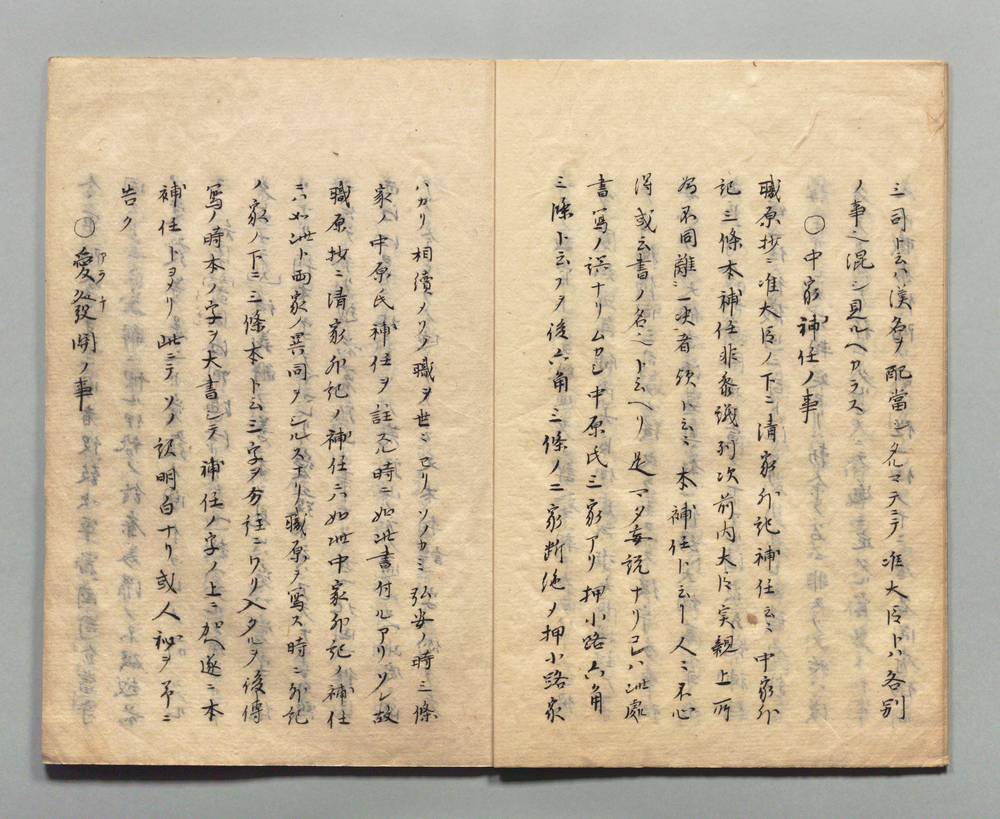 三司ト云ハ漢名ヲ配當シタルマテニテ准大臣トハ各別
ノ事也混シ見ルヘカラス
〇中家補任ノ事
職原抄ニ准大臣ノ下ニ清家外記補任云々中家外
記三條本補任非参議列次前内大臣実親上所
為不同離一决者欤ト云々本補任ト云リ人々不心
得或云書ノ名也ト云ヘリ是マタ妄説ナリコレハ此處
書写ノ誤ナリムカシ中原氏三家アリ押小路六角
三條ト云フタ後六角三條ノ二家断絶ノ押小路家
ハカリ相續ノソノ職ヲ世々ニセリソノカミ弘安ノ時三條
家ノ中原氏補任ヲ註スル時ニ如此書付ルアリソレ故
職原抄ニ清家外記ノ補任ニハ如此中家外記ノ補任
ニハ如此ト両家ノ異同ヲシルスナリ職原ヲ写ス時ニ外記
ノ家ノ下ニ三條本ト云三字ヲ分註ニワリ入タルヲ後傳
写ノ時本ノ字ヲ大書シテ補任ノ字ノ上ニ加ヘ遂ニ本
補任トヲケリ此ニテソノ証明白ナリ或人秘ヲ予ニ
告ク
〇愛發関ノ事
アラチ